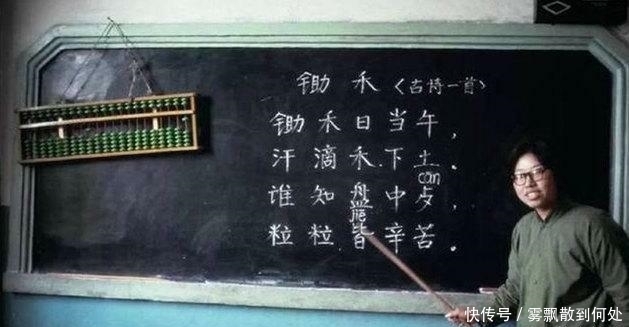 锄 禾〈古诗一首〉
锄禾日当午，
汗滴禾下土。
can
谁知盘中歺，
粒粒皆辛苦。
快传号 / 雾飘散到何处